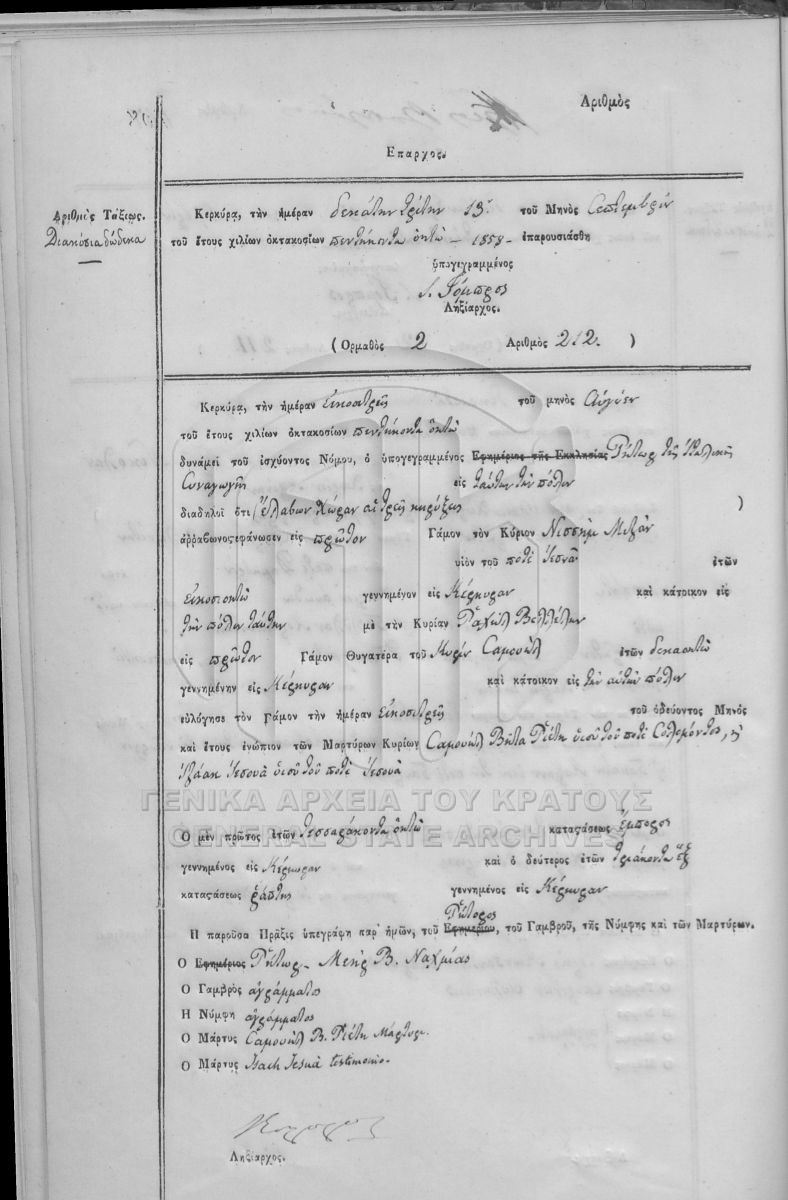 Αριθμὸς
Επαρχος.
Αριθμὸς Τάξεως.
Διακόσια δώδεκα
Κερκύρα, τὴν ἡμέραν δεκάτην τρίτην 13. τοῦ Μηνὸς Σεπτεμβρίου
τοῦ ἔτους χιλίων ὀκτακοσίων πεντήκοντα ὀκτὼ - 1858 - ἐπαρουσιάσθη
ὑπογεγραμμένος
Ληξίαρχος.
( Ορμαθὸς 2 Αριθμὸς 212. )
Κερκύρα, τὴν ἡμέραν εἰκοσιτρεῖς τοῦ μηνὸς
τοῦ ἔτους χιλίων ὀκτακοσίων πεντήκοντα ὀκτὼ
δυνάμει τοῦ ἰσχύοντος Νόμου, ὁ ὑπογεγραμμένος Ἐφημέριος τῆς Εκκλησίας Ρήτωρ τῆς Ἰταλικῆς
Συναγωγῆς εἰς ταύτην τὴν πόλιν
διαδηλοῖ ὅτι (ἔλαβων χώραν αἱ τρεῖς κηρύξεις )
ἀρραβωνοςεφάνωσεν εἰς πρῶτον Γάμον τὸν Κύριον Νισσὴμ Μιζὰν
υἱὸν τοῦ ποτὲ Ἰεσουᾶ ἐτῶν
εἰκοσιοκτὼ γεννημένον εἰς Κέρκυραν καὶ κάτοικον εἰς
τὴν πόλιν ταύτην μὲ τὴν Κυρίαν Ῥαχὼλ
εἰς πρῶτον Γάμον Θυγατέρα τοῦ Κυρίου Σαμουὴλ ἐτῶν δεκαοκτὼ
γεννημένην εἰς Κέρκυραν καὶ κάτοικον εἰς τὴν αὐτὴν πόλιν
εὐλόγησε τὸν Γάμον τὴν ἡμέραν εἰκοσιτρεῖς τοῦ ὁδεύοντος Μηνὸς
καὶ ἔτους ἐνώπιον τῶν Μαρτύρων Κυρίων Σαμουὴλ Βίτα Ριέτη υἱοῦ τοῦ ποτὲ Σολομόντος, καὶ
Ἰζάακ Ἰεσουὰ υἱοῦ τοῦ ποτὲ Ἰεσουὰ
ΓΕΝΙΚΑ ΑΡΧΕΙΑ ΤΟΥ ΚΡΑΤΟΥΣ
GENERAL STATE ARCHIVES
Ο μὲν πρῶτος ἐτῶν τεσσαράκοντα ὀκτὼ καταςάσεως ἔμπορος
γεννημένος εἰς Κέρκυραν καὶ ὁ δεύτερος ἐτῶν τριάκοντα ἕξ
καταςάσεως ῥάπτης γεννημένος εἰς Κέρκυραν
Ρήτορος
Η παροῦσα Πράξις ὑπεγράφη παρ' ἡμῶν, τοῦ Εφημερίου, τοῦ Γαμβροῦ, τῆς Νύμφης καὶ τῶν Μαρτύρων.
Ο Εφημέριος Ρήτωρ - Μεὴρ Β. Ναχμίας
Ο Γαμβρὸς ἀγράμματος
Η Νύμφη ἀγράμματος
Ο Μάρτυς Σαμουὴλ Β. Ριέτη
Ο Μάρτυς Isach Jesuà testimonio.
Ληξίαρχος.